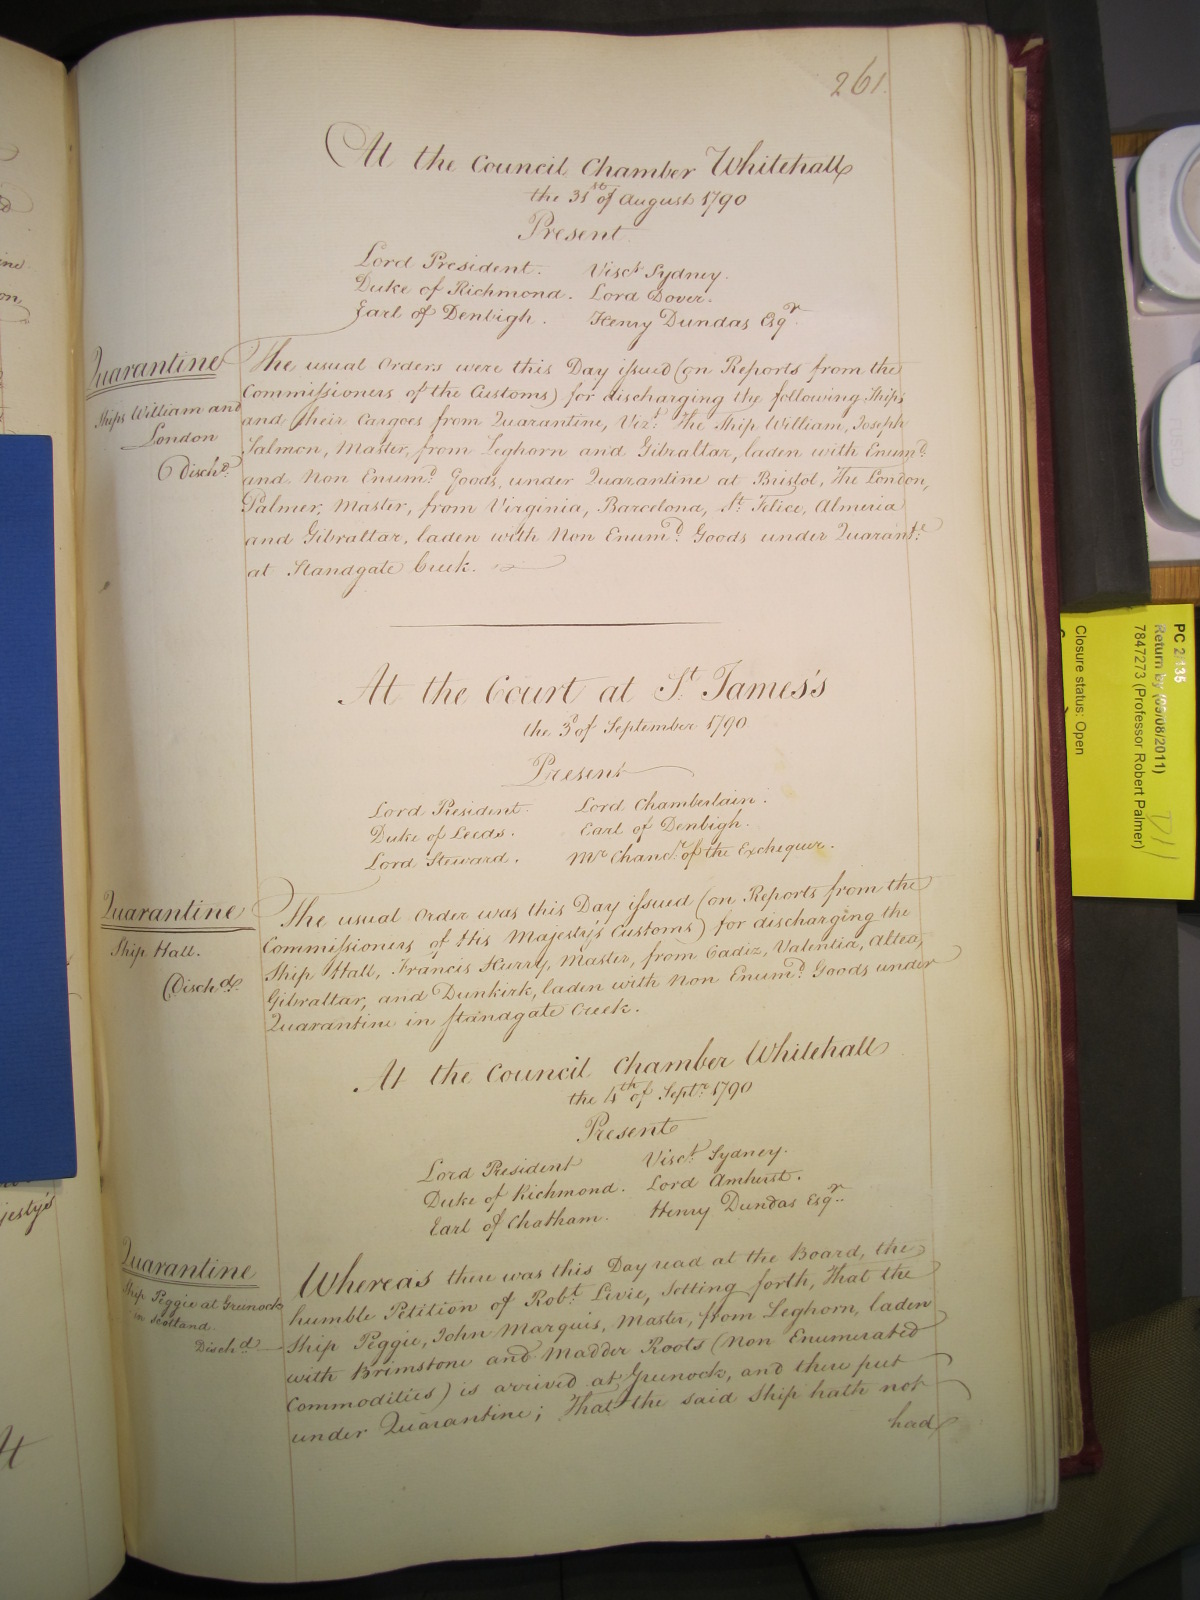 261.
At the Council Chamber Whitehall
the 31st of August 1790
Present
Lord President. Visct. Sydney.
Duke of Richmond. Lord Dover.
Earl of Denbigh. Henry Dundas Esqr.
Quarantine
Ships William and
London
Dischd.
The usual Orders were this Day issued (on Reports from the
Commissioners of the Customs) for discharging the following Ships
and their Cargoes from Quarantine, Vizt. The Ship William, Joseph
Salmon, Master, from Leghorn and Gibraltar, laden with Enumd.
and Non Enumd. Goods, under Quarantine at Bristol, The London,
Palmer, Master, from Virginia, Barcelona, St. Felice, Almeria
and Gibraltar, laden with Non Enumd. Goods under Quarante.
at Standgate Creek.
At the Court at St. James's
the 3d of September 1790
Present
Lord President. Lord Chamberlain.
Duke of Leeds. Earl of Denbigh.
Lord Steward. Mr Chancr. of the Exchequer.
Quarantine
Ship Hall.
Dischd.
The usual Order was this Day issued (on Reports from the
Commissioners of His Majesty's Customs) for discharging the
Ship Hall, Francis Hurry, Master, from Cadiz, Valentia, Altea,
Gibraltar, and Dunkirk, laden with Non Enumd. Goods under
Quarantine in Standgate Creek.
At the Council Chamber Whitehall
the 4th of Septr. 1790
Present
Lord President Visct. Sydney.
Duke of Richmond. Lord Amherst.
Earl of Chatham. Henry Dundas Esqr.
Quarantine
Ship Peggie at Greenock
in Scotland
Dischd.
Whereas there was this Day read at the Board, the
humble Petition of Robt. Livie, Setting forth, That the
Ship Peggie, John Marquis, Master, from Leghorn, laden
with Brimstone and Madder Roots (Non Enumerated
Commodities) is arrived at Greenock, and there put
under Quarantine; That the said Ship hath not
had
jesty's
PC 2/135
Return by (05/08/2011)
7847273 (Professor Robert Palmer)
Closure status: Open